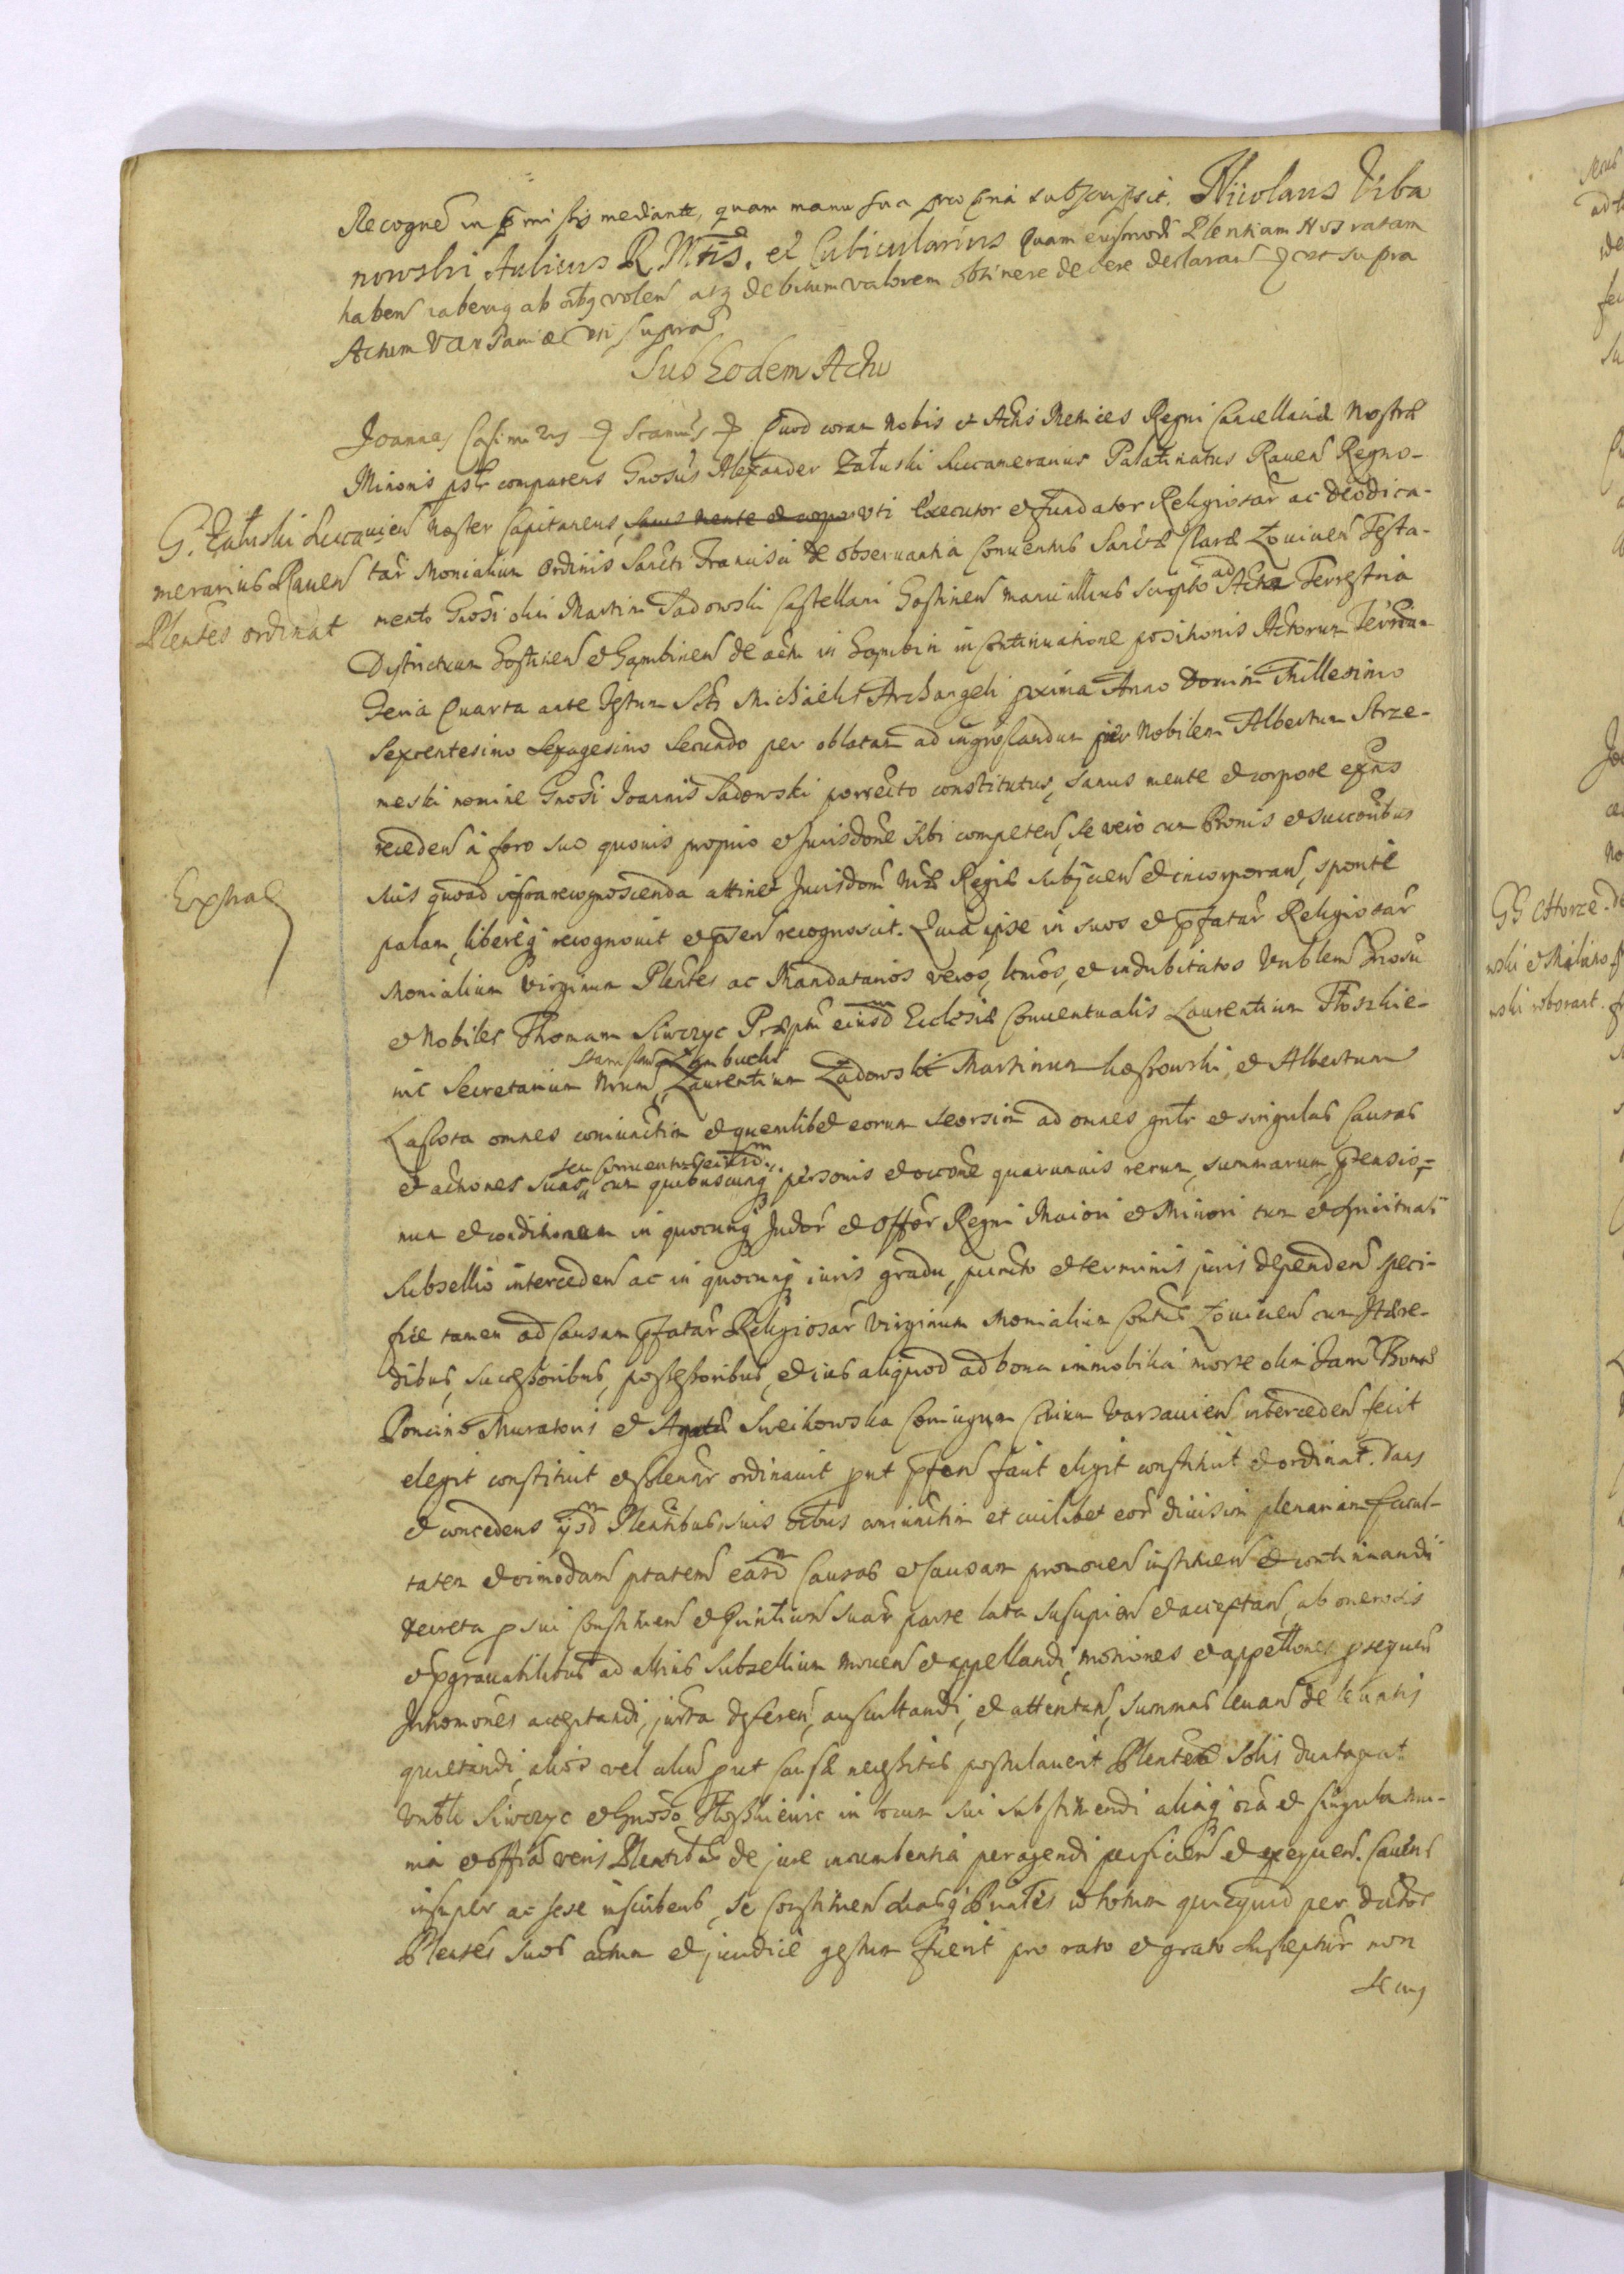 Recogne in pmissis mediante, quam manu sua propria subscripsit. Nicolaus Urba
nowski Aulicus R. Mtis. et Cubicularius Quam eiusmodi Plentiam Nos ratam
haben raberig ab volen atq debitum valorem obtinere debere declaran ut supra
Actum Varsaviæ uti supra
Sub Eodem Actu
Joannes Casimirus Quod coram Nobis et Actis Metrices Regni Cancellariæ Nostræ
Minoris pslr comparens Gnosus Alexander Załuski Succamerarius Palatinatus Raven Regno-
vien Noster Capitaneus, sanus mente et corpore uti Executor et fundator Religiosar ac Deodica-
tar Monialium Ordinis Sancti Francisci de observantia Conventus Sanctæ Claræ Lovicien Testa-
mento Gnosi olim Martini Sadowski Castellani Gostinen manu illius scripto ad Acta Terrestria
Districtuum Gostinen et Gąmbinen de actu in Gąmbin in Continuatione positionis Actorum Terrium
Feria Quarta ante Festum Scti Michaelis Archangeli pxima Anno Domini Millesimo
Sexcentesimo Sexagesimo Secundo per oblatam ad ingrossandum per Nobilem Albertum Strze-
meski nomine Gnosi Joannis Sadowski porrecto constitutus, sanus mente et corpore exns
receden à foro suo quovis proprio et Jurisdone sibi competen, se vero cum Bonis et succoribus
suis quoad infrarecognoscenda attinet Jurisdoni Nræ Regiæ subjicien et incorporan, sponte
palam, libereq recognovit et psen recognoscit. Quia ipse in suos et pfatar Religiosar
Monialium Virginum Plentes ac Mandatarios veros, ltmos, et indubitatos Vnblem Gnosu
et Nobiles Thomam Siwczyc Præptm eiusdm Ecclesiæ Conventualis Laurentium Floszkie-
wic Secretarium Nrum, Stanislaum Zambucki Laurentium Zadowski Martinum Lessowski, et Albertum
Lassota omnes coniunctim et quemlibet eorum seorsim ad omnes gnlr et singulas Causas
et actiones suas seu Conventus eiusdm cum quibuscunq personis et occone quarumvis rerum, summarum, ptensio-
num et conditionum in quocunq Judor et Offor Regni Maiori et Minori tum et spirituali
Subsellio interceden ac in quocunq iuris gradu, puncto et terminis juris dependen speci-
fice tamen ad Causam pfatar Religiosar Virginum Monialium Contus Lovicien cum Hære-
dibus, successoribus, possessoribus, et ius aliquod ad bona immobilia morte olim Jani Bonæ
Poncino Muratoris et Agatæ Sweikowska Coniugum Civium Varsavien interceden fecit
elegit constituit et solennr ordinavit put psen facit eligit constituit et ordinat. Dans
et concedens ijsdm Plentibus suis oibus coniunctim et cuilibet eor divisim plenariam facul-
tatem et oimodam ptatem easdm Causas et Causam promoven instituen et continuandi
decreta p sui constituen et Printium suar parte lata suscipien et acceptan, ab onerosis
et pgravatilibus ad altius Subsellium moven et appellandi, motiones et appellones psequen
Inhomones acceptandi, jurta deferen, auscultandi, et attentan, summas levan de levatis
quietandi, alios vel alium put causæ necessitas postulaverit Plentes solis duntaxat
Vnbli Siwczyc et Gnoso Floszkiewic in locum sui substituendi aliaq oia et singula mu-
nia et offia veris Plentibus de jure incumbentia peragendi perficien et exequen. Cavens
insuper ac sese inscribens, se constituen suasq Printes id totum quicquid per dictos
Plentes suos actum et juridice gestum fuerit pro rato et grato suscepturr non
secus
G. Załuski Succa
merarius Raven
Plentes ordinat
Extrad
GG
wski et
wski roborant.